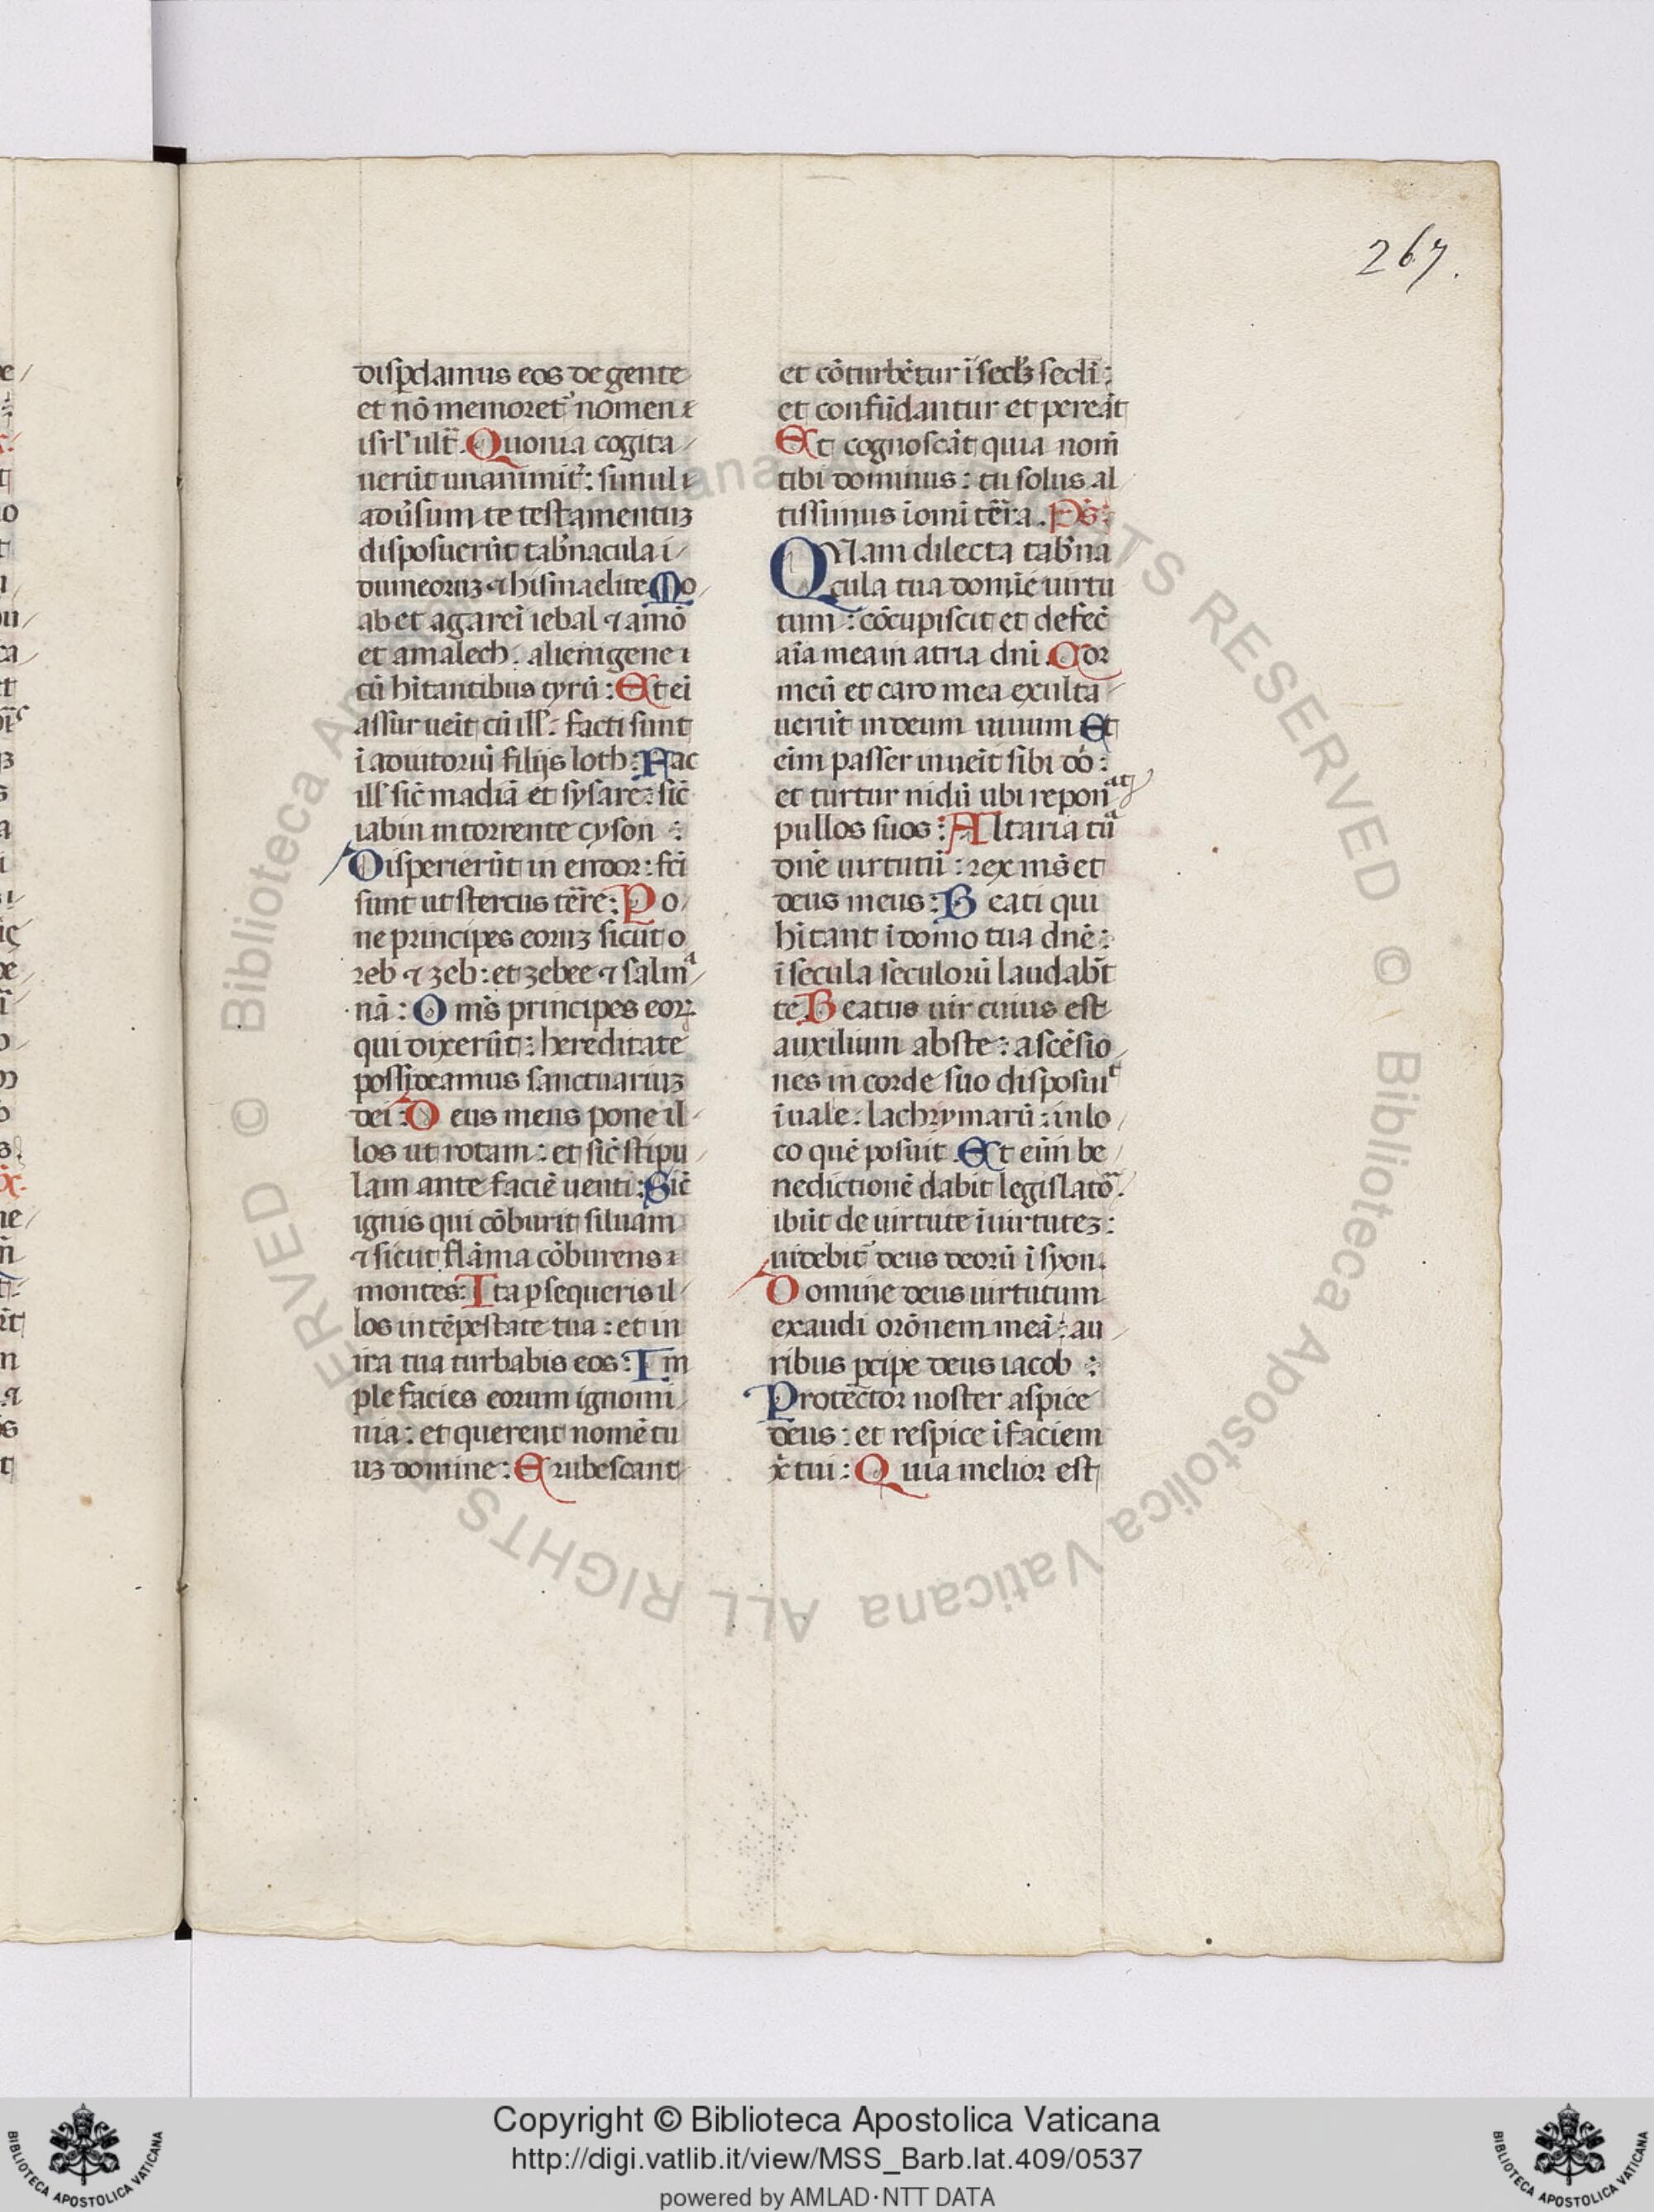 267.
disꝑdamus eos de gente
et nō memoret᷑ nomen
isrl' ultᷓ. Quonia cogita
uerūt unanimit᷑: simul
adūsum te testamentuꝫ
disposuerūt tab̄nacula i
dumeoruꝫ ⁊ hismaelite Mo
ab et agareī iebal ⁊ amō
et amalech: alienigene
cū hītantibus tyrū: Et eī
assur ueīt cū ill': facti sunt
ī adiutoriū filijs loth: Fac
ill' sic̄ madiā et sysare: sic̄
iabin in torrente cyson:
Disperierūt in endor: fc̄i
sunt ut stercus tēre: Po
ne principes eoruꝫ sicut o
reb ⁊ zeb: et zebee ⁊ salmᵃ
nā: Om̄s principes eoꝝ
qui dixerūt: hereditate
possideamus sanctuariuꝫ
dei: Deus meus pone il
los ut rotam: et sic̄ stipu
lam ante faciē uenti: Sic̄
ignis qui cōburit siluam
⁊ sicut flāma cōburens
montes: Ita ꝑsequeris il
los in tēpestate tua: et in
ira tua turbabis eos: Im
ple facies eorum ignomi
nia: et querent nomē tu
uꝫ domine: Erubescant
et cōturbētur ī sec̄lꝫ sec̄li:
et confūdantur et pereāt
Et cognoscāt quia nom̄
tibi dominus: tu solus al
tissimus ī omī tēra. Ps̄:
QUam dilecta tab̄na
cula tua domīe uirtu
tum: cōcupiscit et defec̄
aīa mea in atria dnī. Cor
meū et caro mea exulta
uerūt in deum uiuum Et
eīm passer inueīt sibi dō:
et turtur nidū ubi reponᵃᵗ
pullos suos: Altaria tuᵃ
dnē uirtutū: rex ms̄ et
deus meus: Beati qui
hītant ī domo tua dnē:
ī secula seculorū laudabt̄
te Beatus uir cuius est
auxilium abste: ascēsio
nes in corde suo disposuiᵗ
ī uale lachrymarū: in lo
co quē posuit. Et eīm be
nedictionē dabit legislatoᷓ.
ibūt de uirtute ī uirtuteꝫ:
uidebit᷑ deus deorū ī syon.
Domine deus uirtutum
exaudi orōnem meā: au
ribus ꝑcipe deus iacob:
Protector noster aspice
deus: et respice ī faciem
xp̄i tui: Quia melior est
© Biblioteca Apostolica Vaticana ALL RIGHTS RESERVED © Biblioteca Apostolica Vaticana ALL RIGHTS RESERVED
BIBLIOTECA APOSTOLICA VATICANA
Copyright © Biblioteca Apostolica Vaticana
http://digi.vatlib.it/view/MSS_Barb.lat.409/0537
powered by AMLAD·NTT DATA
BIBLIOTECA APOSTOLICA VATICANA